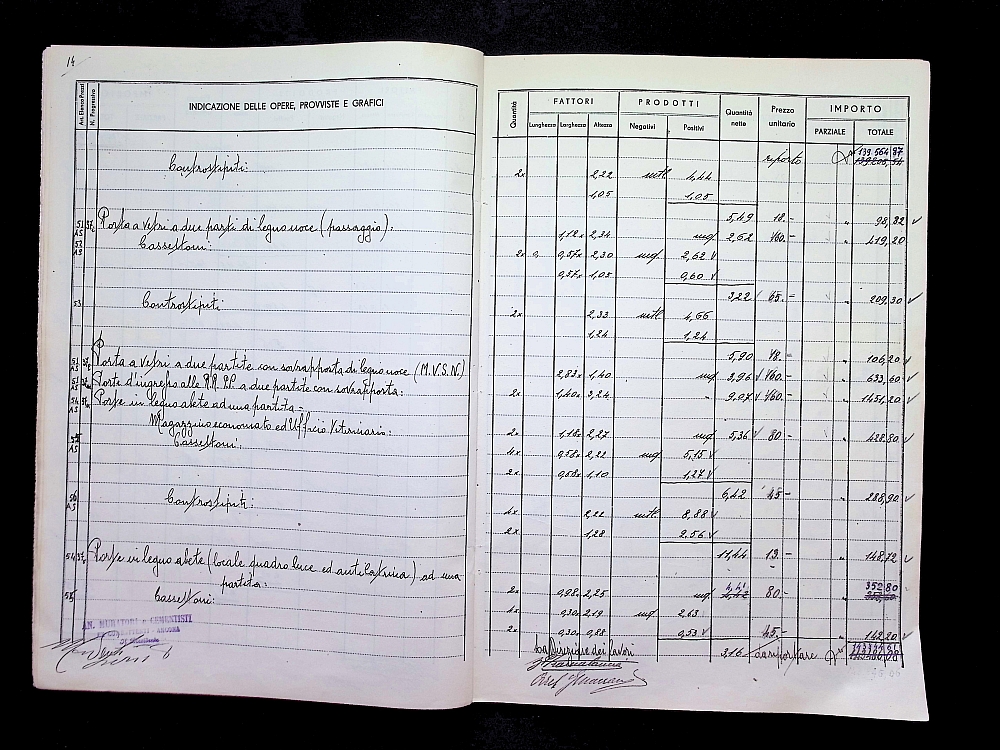 14
Art. Elenco Prezzi
N. Progressivo
INDICAZIONE DELLE OPERE, PROVVISTE E GRAFICI
Quantità
FATTORI
Lunghezza Larghezza Altezza
PRODOTTI
Negativi Positivi
Quantità nette
Prezzo unitario
IMPORTO
PARZIALE TOTALE
riporto 139.564,87
Controstipiti:
2x 2,22 mtl 4,44
1,05 1,05
5,49 18.- " 98,82
51 AS Porta a vetri a due partiti di legno noce (passaggio):
1,12x 2,34 mq 2,62 160.- " 419,20
52 AS Cassettoni:
2x 0,57x 2,30 mq 2,62
0,57x 1,05 0,60
3,22 65.- " 209,30
53 Controstipiti
2x 2,33 mtl 4,66
1,24 1,24
5,90 18.- " 106,20
51 AS Porta a vetri a due partite con sovrapporta di legno noce (M.V.S.N.)
2,83x 1,40 mq 3,96 160.- " 633,60
51 AS Porte d'ingresso alle RR. PP. a due partite con sovrapporta:
2x 1,40x 3,24 " 9.07 160.- " 1451,20
54 AS Porte in legno abete ad una partita -
Magazzino economato ed Ufficio Veterinario:
2x 1,18x 2,27 mq 5,36 80.- " 428,80
Cassettoni:
4x 0,58x 2,22 mq 5,15
2x 0,58x 1,10 1,27
6,42 45.- " 288,90
56 AS Controstipiti:
4x 2,22 mtl. 8,88
2x 1,28 2.56
11,44 13.- " 148,72
54 Porte in legno abete (locale quadro luce ed antilatrina) ad una
partita:
2x 0,98x 2,25 mq 4.41 80.- " 352,80
55 Cassettoni:
4x 0,30x 2,19 mq 2,63
2x 0,30x 0,88 0,53 45.- " 142,20
3,16 da riportare
La Direzione dei Lavori
AN. MURATORI e CEMENTISTI
ANCONA